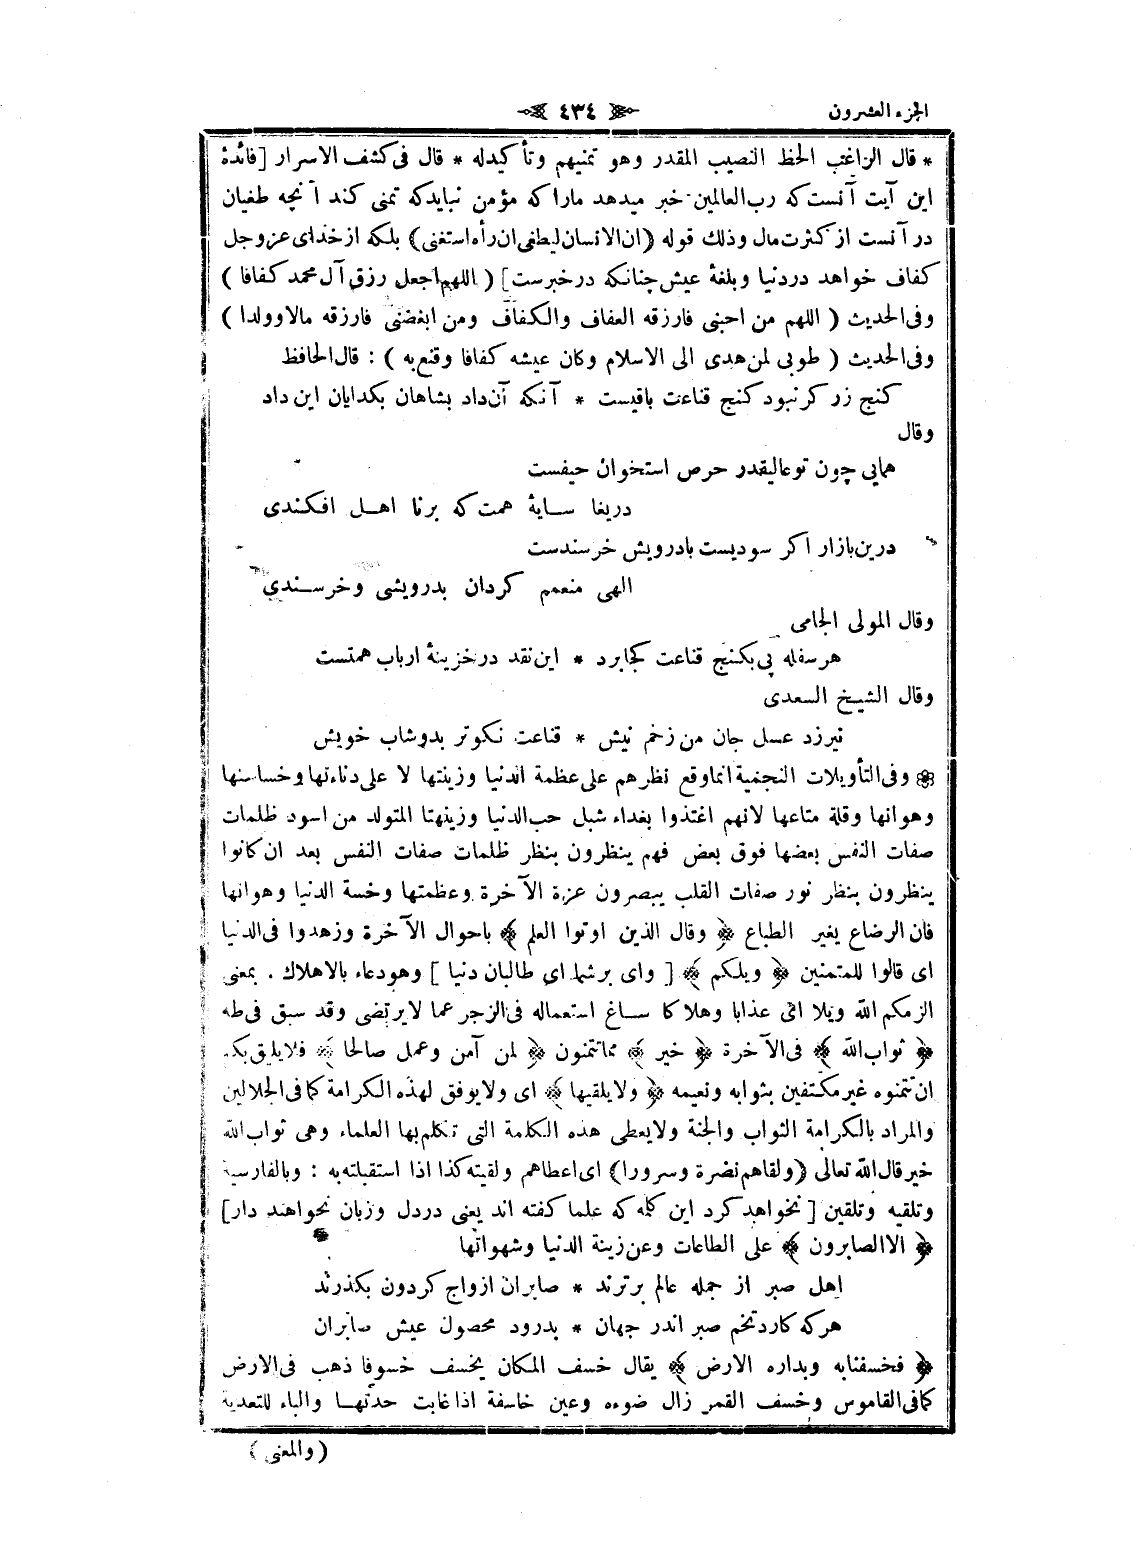 الجزء العشرون
٤٣٤
* قال الراغب الحظ النصيب المقدر وهو تمنيهم وتأكيدله * قال فى كشف الاسرار [فائدۀ
اين آيت آنست كه رب العالمين خبر ميدهد مارا كه مؤمن نبايدكه تمنى كند آنچه طغيان
در آنست از كثرت مال وذلك قوله (ان الانسان ليطغى ان رأه استغنى) بلكه از خداى عز وجل
كفاف خواهد در دنيا وبلغۀ عيش چنانكه در خبرست] ( اللهم اجعل رزق آل محمد كفافا )
وفى الحديث ( اللهم من احبنى فارزقه العفاف والكفاف ومن ابغضنى فارزقه مالا وولدا )
وفى الحديث ( طوبى لمن هدى الى الاسلام وكان عيشه كفافا وقنع به ) : قال الحافظ
كنج زر كر نبود كنج قناعت باقيست * آنكه آن داد بشاهان بكدايان اين داد
وقال
همايى چون تو عاليقدر حرص استخوان حيفست
دريغا سايۀ همت كه برنا اهل افكندى
درين بازار اكر سوديست بادرويش خرسندست
الهى منعمم كردان بدرويشى وخرسندى
وقال المولى الجامى
هر سفله پى بكنج قناعت كجا برد * اين نقد در خزينۀ ارباب همتست
وقال الشيخ السعدى
نيرزد عسل جان من زخم نيش * قناعت نكوتر بدوشاب خويش
وفى التأويلات النجمية انما وقع نظرهم على عظمة الدنيا وزينتها لا على دناءتها وخساستها
وهوانها وقلة متاعها لانهم اغتذوا بغداء شبل حب الدنيا وزينهتا المتولد من اسود ظلمات
صفات النفس بعضها فوق بعض فهم ينظرون بنظر ظلمات صفات النفس بعد ان كانوا
ينظرون بنظر نور صفات القلب يبصرون عزة الآخرة وعظمتها وخسة الدنيا وهوانها
فان الرضاع يغير الطباع ﴿ وقال الذين اوتوا العلم ﴾ باحوال الآخرة وزهدوا فى الدنيا
اى قالوا للمتمنين ﴿ ويلكم ﴾ [ واى برشما اى طالبان دنيا ] وهو دعاء بالاهلاك . بمعنى
الزمكم الله ويلا اى عذابا وهلاكا ساغ استعماله فى الزجر عما لا يرتضى وقد سبق فى طه
﴿ ثواب الله ﴾ فى الآخرة ﴿ خير ﴾ مما تتمنون ﴿ لمن آمن وعمل صالحا ﴾ فلا يليق بكم
ان تتمنوه غير مكتفين بثوابه ونعيمه ﴿ ولا يلقيها ﴾ اى ولا يوفق لهذه الكرامة كما فى الجلالين
والمراد بالكرامة الثواب والجنة ولا يعطى هذه الكلمة التى تكلم بها العلماء وهى ثواب الله
خير قال الله تعالى (ولقاهم نضرة وسرورا) اى اعطاهم ولقيته كذا اذا استقبلته به : وبالفارسية
وتلقيه وتلقين [ نخواهد كرد اين كله كه علما كفته اند يعنى در دل وزبان نخواهند دار]
﴿ الا الصابرون ﴾ على الطاعات وعن زينة الدنيا وشهواتها
اهل صبر از جمله عالم برترند * صابران از واج كردون بكذرند
هركه كارد تخم صبر اندر جهان * بدرود محصول عيش صابران
﴿ فخسفنا به وبداره الارض ﴾ يقال خسف المكان يخسف خسوفا ذهب فى الارض
كما فى القاموس وخسف القمر زال ضوءه وعين خاسفة اذا غابت حدقتها والباء للتعدية
( والمعنى )